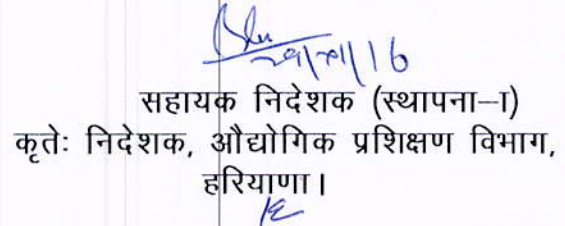 सहायक निदेशक (स्थापना–I)
कृतेः निदेशक, औद्योगिक प्रशिक्षण विभाग,
हरियाणा।